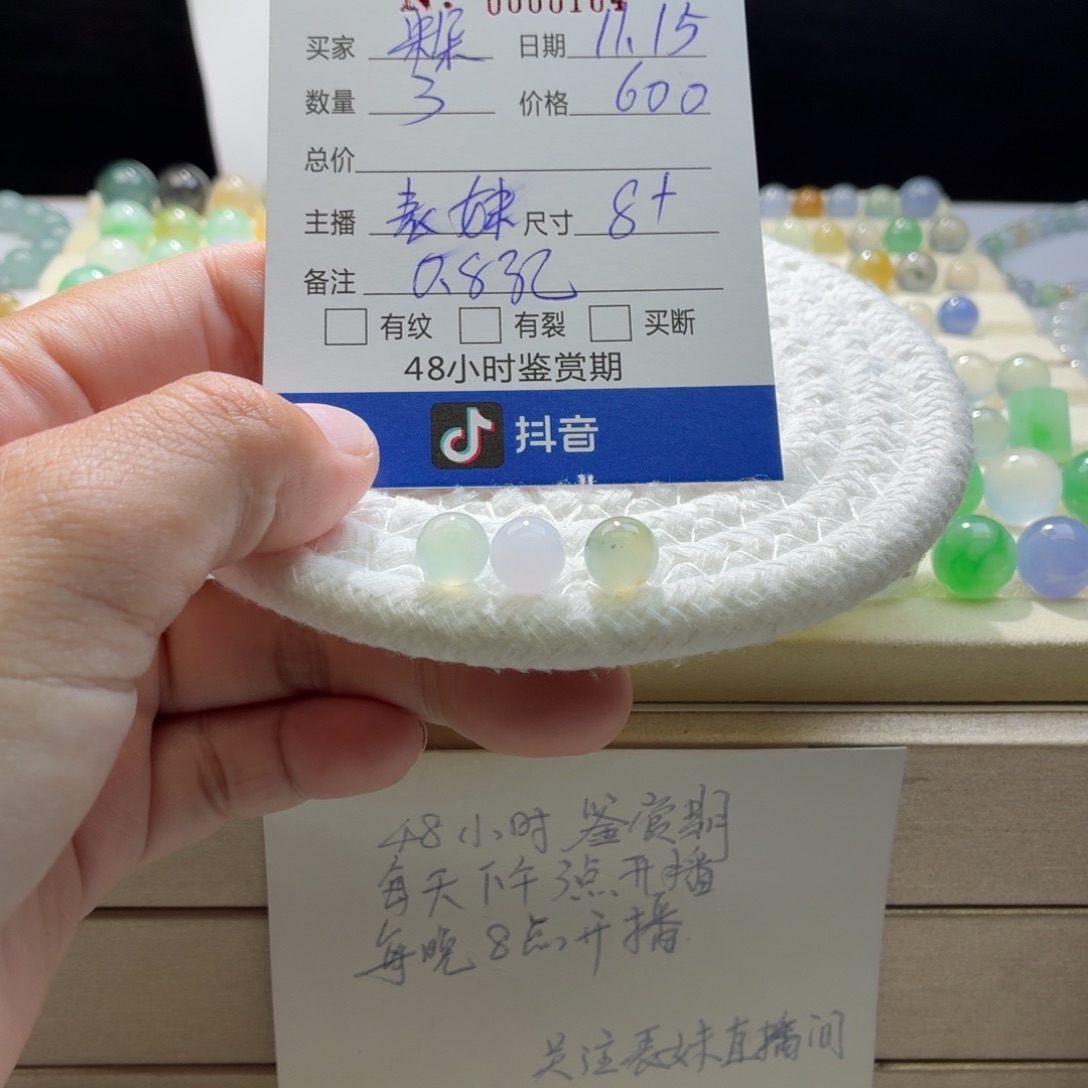 No. 0000164
买家 日期 11.15
数量 3 价格 600
总价
主播 表妹 尺寸 8+
备注 0.83亿
有纹 有裂 买断
48小时鉴赏期
抖音
48小时鉴赏期
每天下午3点开播
每晚8点开播
关注表妹直播间